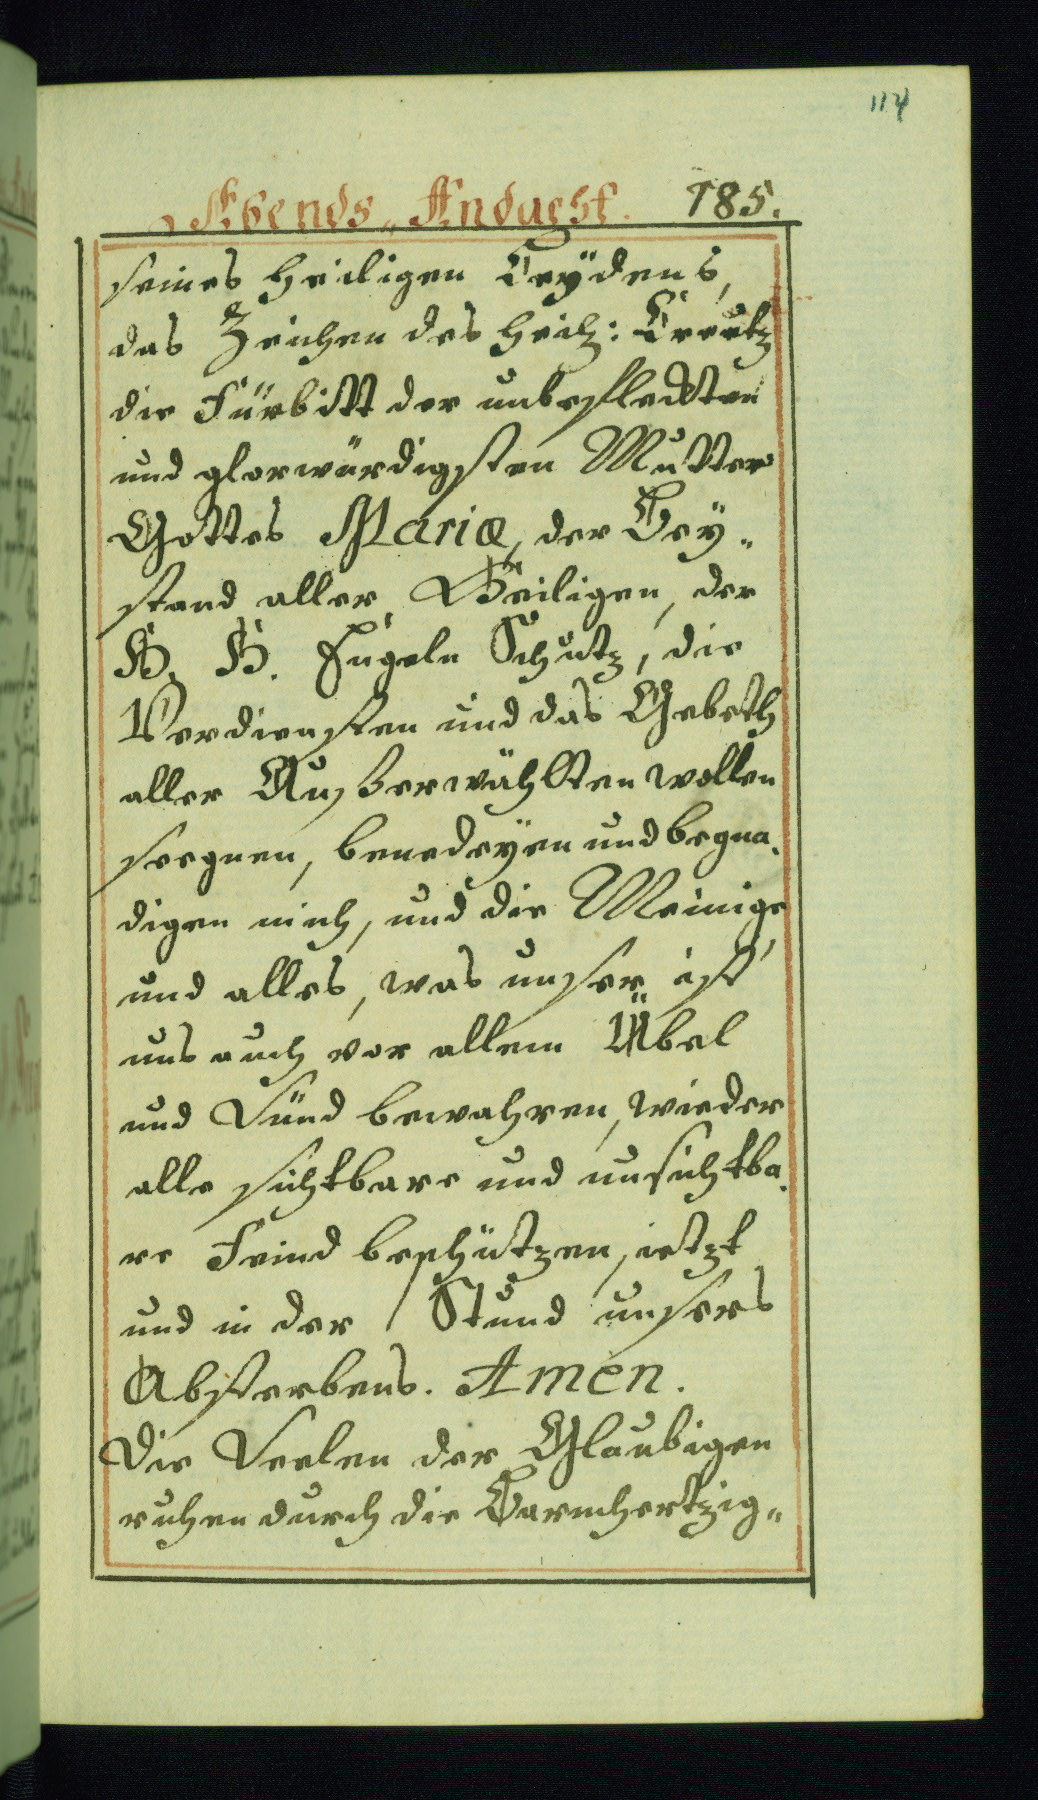 114
Abends„ Andacht. 185.
seines heiligen Leÿdens,
das Zeichen des heil: Creutz
die Fürbitt der unbefleckten
und glorwürdigsten Mutter
Gottes Mariæ, der Bey„
stand aller Heiligen, der
H. H. Engeln Schutz, die
Verdiensten und das Gebeth
aller Außerwählten wollen
seegnen, benedeÿen und begna„
digen mich, und die Meinige
und alles, was unser ist
uns auch vor allem Übel
und Sünd bewahren, wieder
alle sichtbare und unsichtba„
re Feind beschützen, ietzt
und in der Stund unsers
Absterbens. Amen.
Die Seelen der Glaubigen
ruhen durch die Barmhertzig„